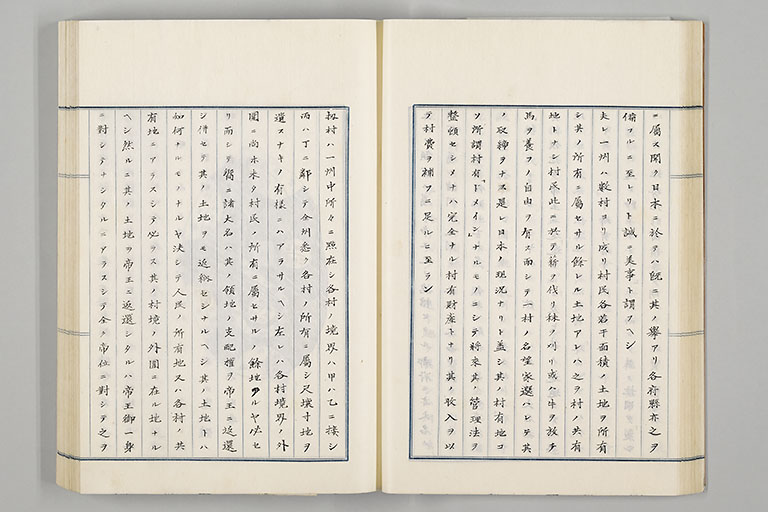 ニ屬ス聞ク日本ニ於テハ既ニ其ノ擧アリ各府縣亦之ヲ
備フルニ至レリト誠ニ美事ト謂フヘシ
夫レ一州ハ數村ヨリ成リ村民各若干面積ノ土地ヲ所有
シ其ノ所有ニ屬セサル餘レル土地アレハ之ヲ村ノ共有
地トナシ村民此ニ於テ薪ヲ伐リ秣ヲ刈リ或ハ牛ヲ放チ
馬ヲ養フノ自由ヲ有ス而シテ一村ノ名望家選ハレテ其
ノ取締ヲナス是レ日本ノ現況ナリト蓋シ其ノ村有地コ
ソ所謂村有「ドメイン」ナルモノニシテ將來其ノ管理法ヲ
整頓セシメナハ完全ナル村有財産トナリ其ノ收入ヲ以
テ村費ヲ補フニ足ルニ至ラン
扨村ハ一州中所々ニ點在シ各村ノ境界ハ甲ハ乙ニ接シ
丙ハ丁ニ鄰シテ全州悉ク各村ノ所有ニ屬シ尺壌寸地ヲ
遺スナキノ有樣ニハアラサルヘシ左レハ各村境界ノ外
圍ニ尚ホ未タ村民ノ所有ニ屬セサルノ餘地アルヤ必セ
リ而シテ嚮ニ諸大名ハ其ノ領地ノ支配權ヲ帝王ニ返還
シ併セテ其ノ土地ヲモ返納セシナルヘシ其ノ土地トハ
如何ナルモノナルヤ決シテ人民ノ所有地又ハ各村ノ共
有地ニアラスシテ必ラス其ノ村境ノ外圍ニ在ル地ナル
ヘシ然ルニ其ノ土地ヲ帝王ニ返還シタルハ帝王御一身
ニ對シテナシタルニアラスシテ全ク帝位ニ對シテ之ヲ